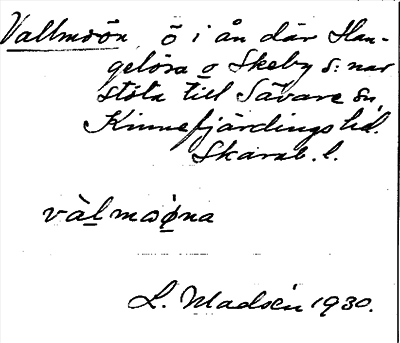 Vallmoön ö i ån där Han-
gelösa o Skeby s:nar
stöta till Sävare sn
Kinnefjärdings hd.
Skarab. l.
vàlmoøna
L. Madsén 1930.